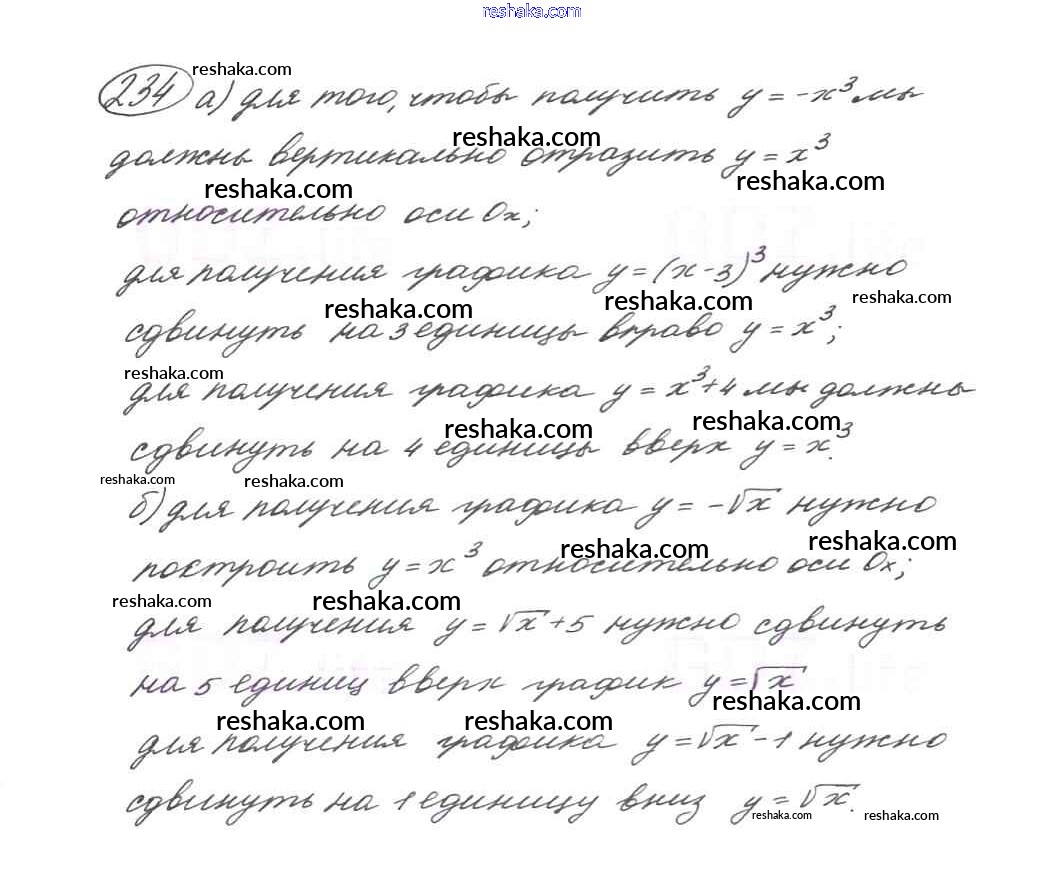 reshaka.com
reshaka.com
234 а) для того, чтобы получить y = -x³ мы
reshaka.com
должны вертикально отразить y = x³
reshaka.com reshaka.com
относительно оси Ox;
для получения графика y = (x-3)³ нужно
reshaka.com reshaka.com reshaka.com
сдвинуть на 3 единицы вправо y = x³;
reshaka.com
для получения графика y = x³+4 мы должны
reshaka.com reshaka.com
сдвинуть на 4 единицы вверх y = x³.
reshaka.com reshaka.com
б) для получения графика y = -√x нужно
reshaka.com reshaka.com
построить y = x³ относительно оси Ox;
reshaka.com reshaka.com
для получения y = √x + 5 нужно сдвинуть
на 5 единиц вверх график y = √x
reshaka.com reshaka.com reshaka.com
для получения графика y = √x - 1 нужно
сдвинуть на 1 единицу вниз y = √x.
reshaka.com reshaka.com